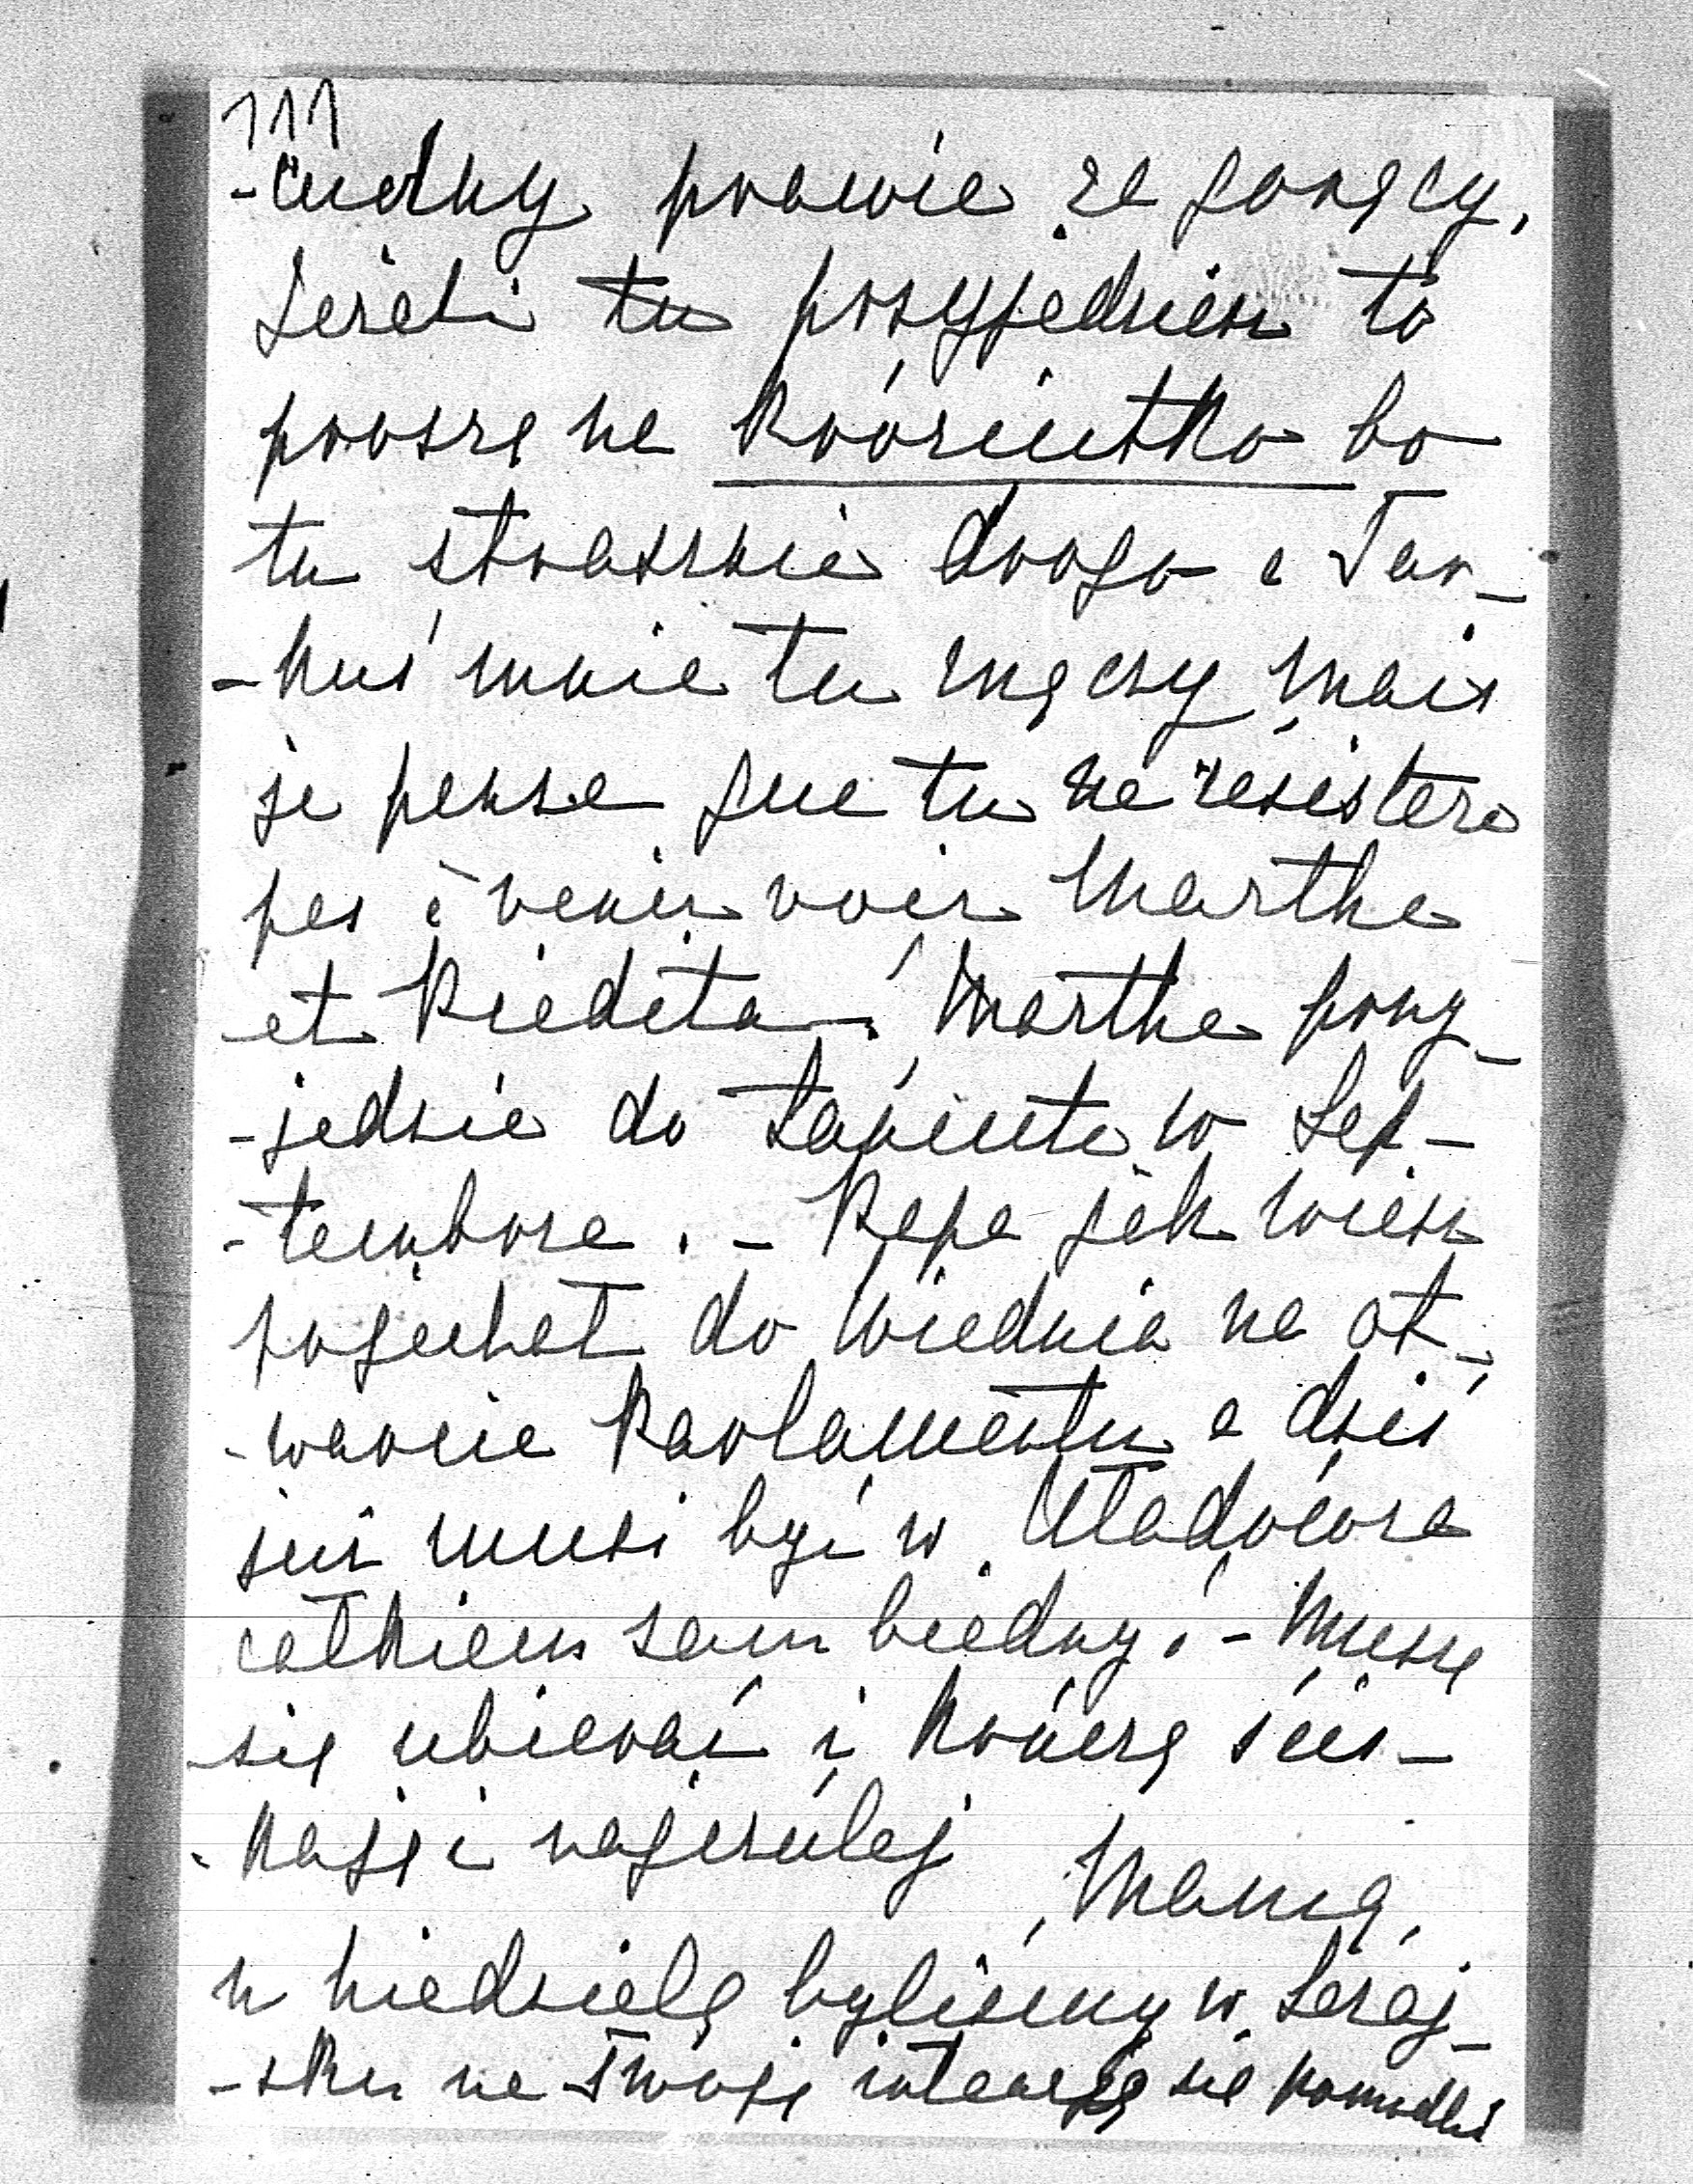 111
-cudny prawie za gorący.
Jeżeli tu przyjedziesz to
proszę na króciutko bo
tu strasznie drogo a Jan-
-kuś mnie tu męczy mais
je pense que tu ne résistera
pas à venir voir Marthe
et Biedita. Marthe przy-
-jedzie do Łańcuta w Sep-
-tembrze. - Pepe jak wiesz
pojechał do Wiednia na ot-
-warcie Parlamentu a dziś
już musi być w
całkiem sam biedny. - Muszę
się ubierać i kończę ścis-
-kając i najczulej
Mama
w niedzielę byliśmy w Leżaj-
-sku na Twoję intencję się pomodlić